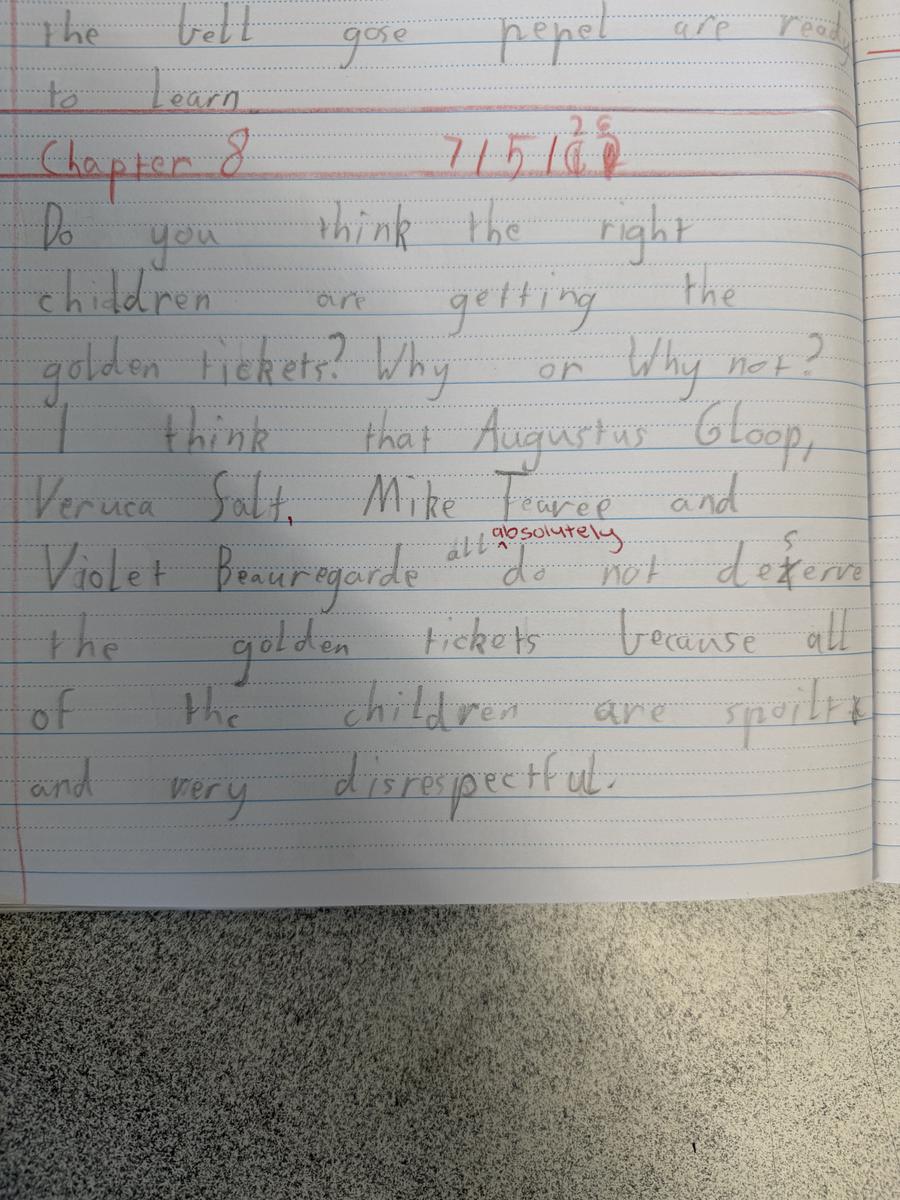 the bell gose pepel are ready
to learn
Chapter 8 7/5/26
Do you think the right
children are getting the
golden tickets? Why or Why not?
I think that Augustus Gloop,
Veruca Salt, Mike Teavee and
absolutely
Violet Beauregarde all do not deserve
the golden tickets because all
of the children are spoilt
and very disrespectful.